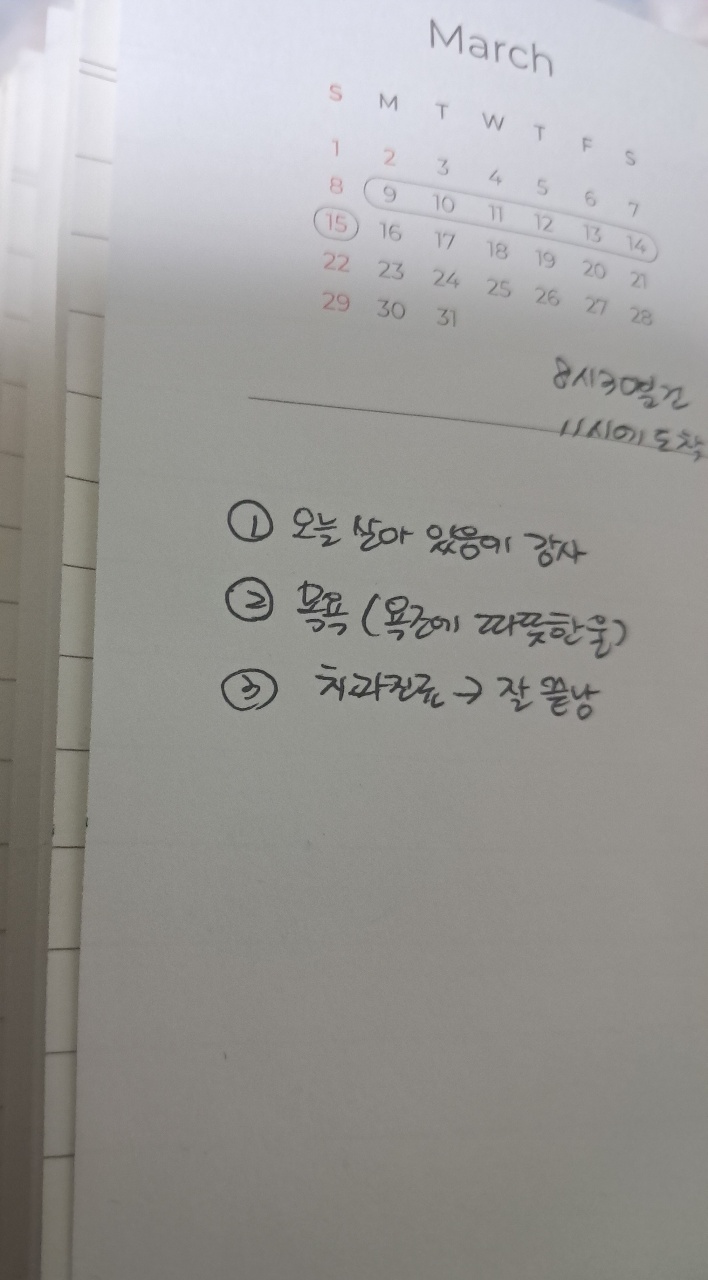 March
S M T W T F S
1 2 3 4 5 6 7
8 9 10 11 12 13 14
15 16 17 18 19 20 21
22 23 24 25 26 27 28
29 30 31
8시30
11시에 도착
① 오늘 살아 있음에 감사
② 목욕 (욕조에 따뜻한 물)
③ 치과진료 → 잘 끝낭